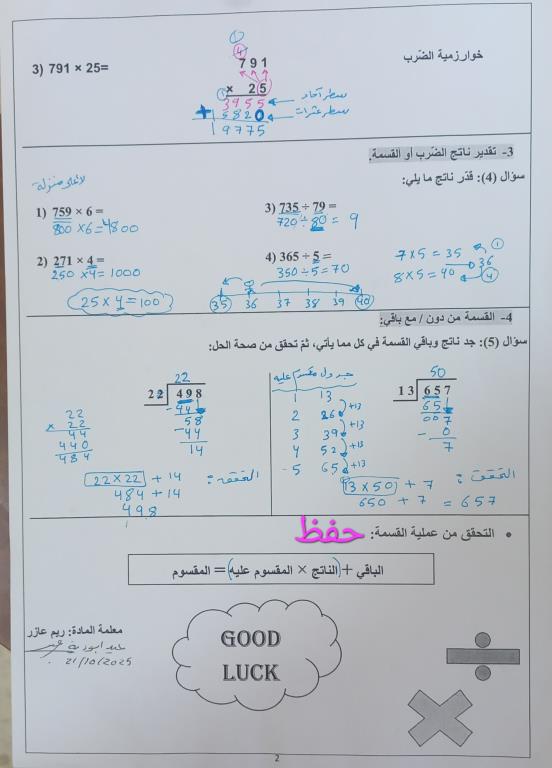 خوارزمية الضّرب
3) 791 × 25=
① ④
791
× 25
3955 سطر آحاد
+ 15820 سطر عشرات
19775
3- تقدير ناتج الضّرب أو القسمة.
سؤال (4): قدّر ناتج ما يلي:
لأعلى منزلة
1) 759 × 6 =
800 × 6 = 4800
3) 735 ÷ 79 =
720 ÷ 80 = 9
2) 271 × 4 =
250 × 4 = 1000
25 × 4 = 100
4) 365 ÷ 5 =
350 ÷ 5 = 70
7 × 5 = 35 ①
36
8 × 5 = 40 ④
35 36 37 38 39 40
4- القسمة من دون / مع باقي:
سؤال (5): جد ناتج وباقي القسمة في كل مما يأتي، ثمّ تحقق من صحة الحل:
50
13 657
65↓
007
- 0
7
التحقق:
13 × 50 + 7
650 + 7 = 657
جدول مقسوم عليه
1 13
2 26 +13
3 39 +13
4 52 +13
5 65 +13
22
22 498
- 44↓
58
- 44
14
22
× 22
44
440
484
التحقق:
22 × 22 + 14
484 + 14
498
• التحقق من عملية القسمة: حفظ
الباقي + (الناتج × المقسوم عليه) = المقسوم
GOOD
LUCK
معلمة المادة: ريم عازر
21/10/2025
2